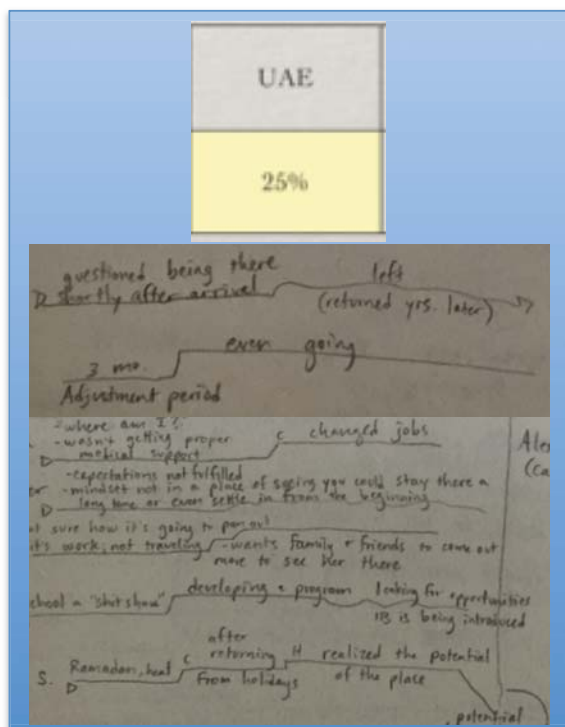 UAE
25%
questioned being there
D shortly after arrival
left
(returned yrs. later)
3 mo.
even going
Adjustment period
-where am I?
-wasn't getting proper
medical support
D
C changed jobs
-expectations not fulfilled
-mindset not in a place of seeing you could stay there a
D long time or even settle in from the beginning
sure how it's going to pan out
it's work, not traveling
-wants family + friends to come out
more to see her there
school a "shit show"
developing a program
looking for opportunities
IB is being introduced
S. Ramadan, heat
D
C after
returning
from holidays
H realized the potential
of the place
potential